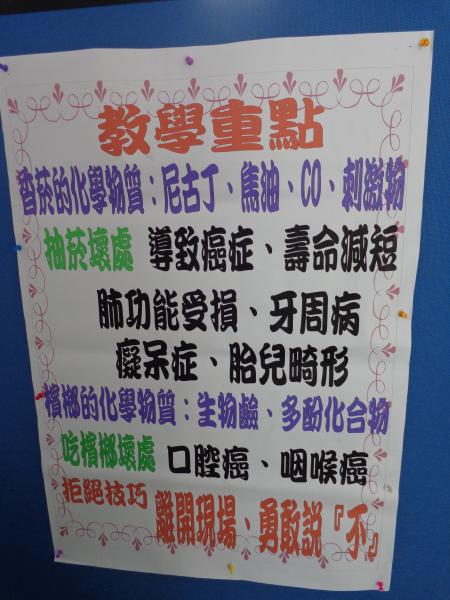 教學重點
香菸的化學物質：尼古丁、焦油、CO、刺激物
抽菸壞處 導致癌症、壽命減短
肺功能受損、牙周病
癡呆症、胎兒畸形
檳榔的化學物質：生物鹼、多酚化合物
吃檳榔壞處 口腔癌、咽喉癌
拒絕技巧 離開現場、勇敢說『不』